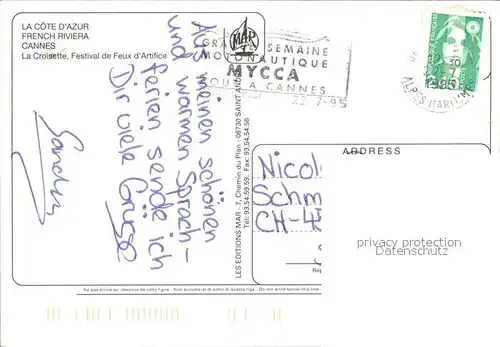 LA CÔTE D'AZUR
FRENCH RIVIERA
CANNES
La Croisette, Festival de Feux d'Artifice
MAR
SEMAINE
MOTONAUTIQUE
MYCCA
CANNES
22-7-95
30
7
1995
ALPES MARITIMES
Aus meinen schönen
und warmen Sprach-
ferien sende ich
Dir viele Grüsse
Sandra
LES EDITIONS MAR - 7, Chemin du Plan - 06730 SAINT ANDRE
Tél: 93.54.59.59. Fax: 93.54.54.58
ADDRESS
Nicol
Schm
CH-4
Rep
privacy protection
Datenschutz
Ne pas écrire au dessous de cette ligne - Non scrivere al di sotto di questa riga - Do not write below this line